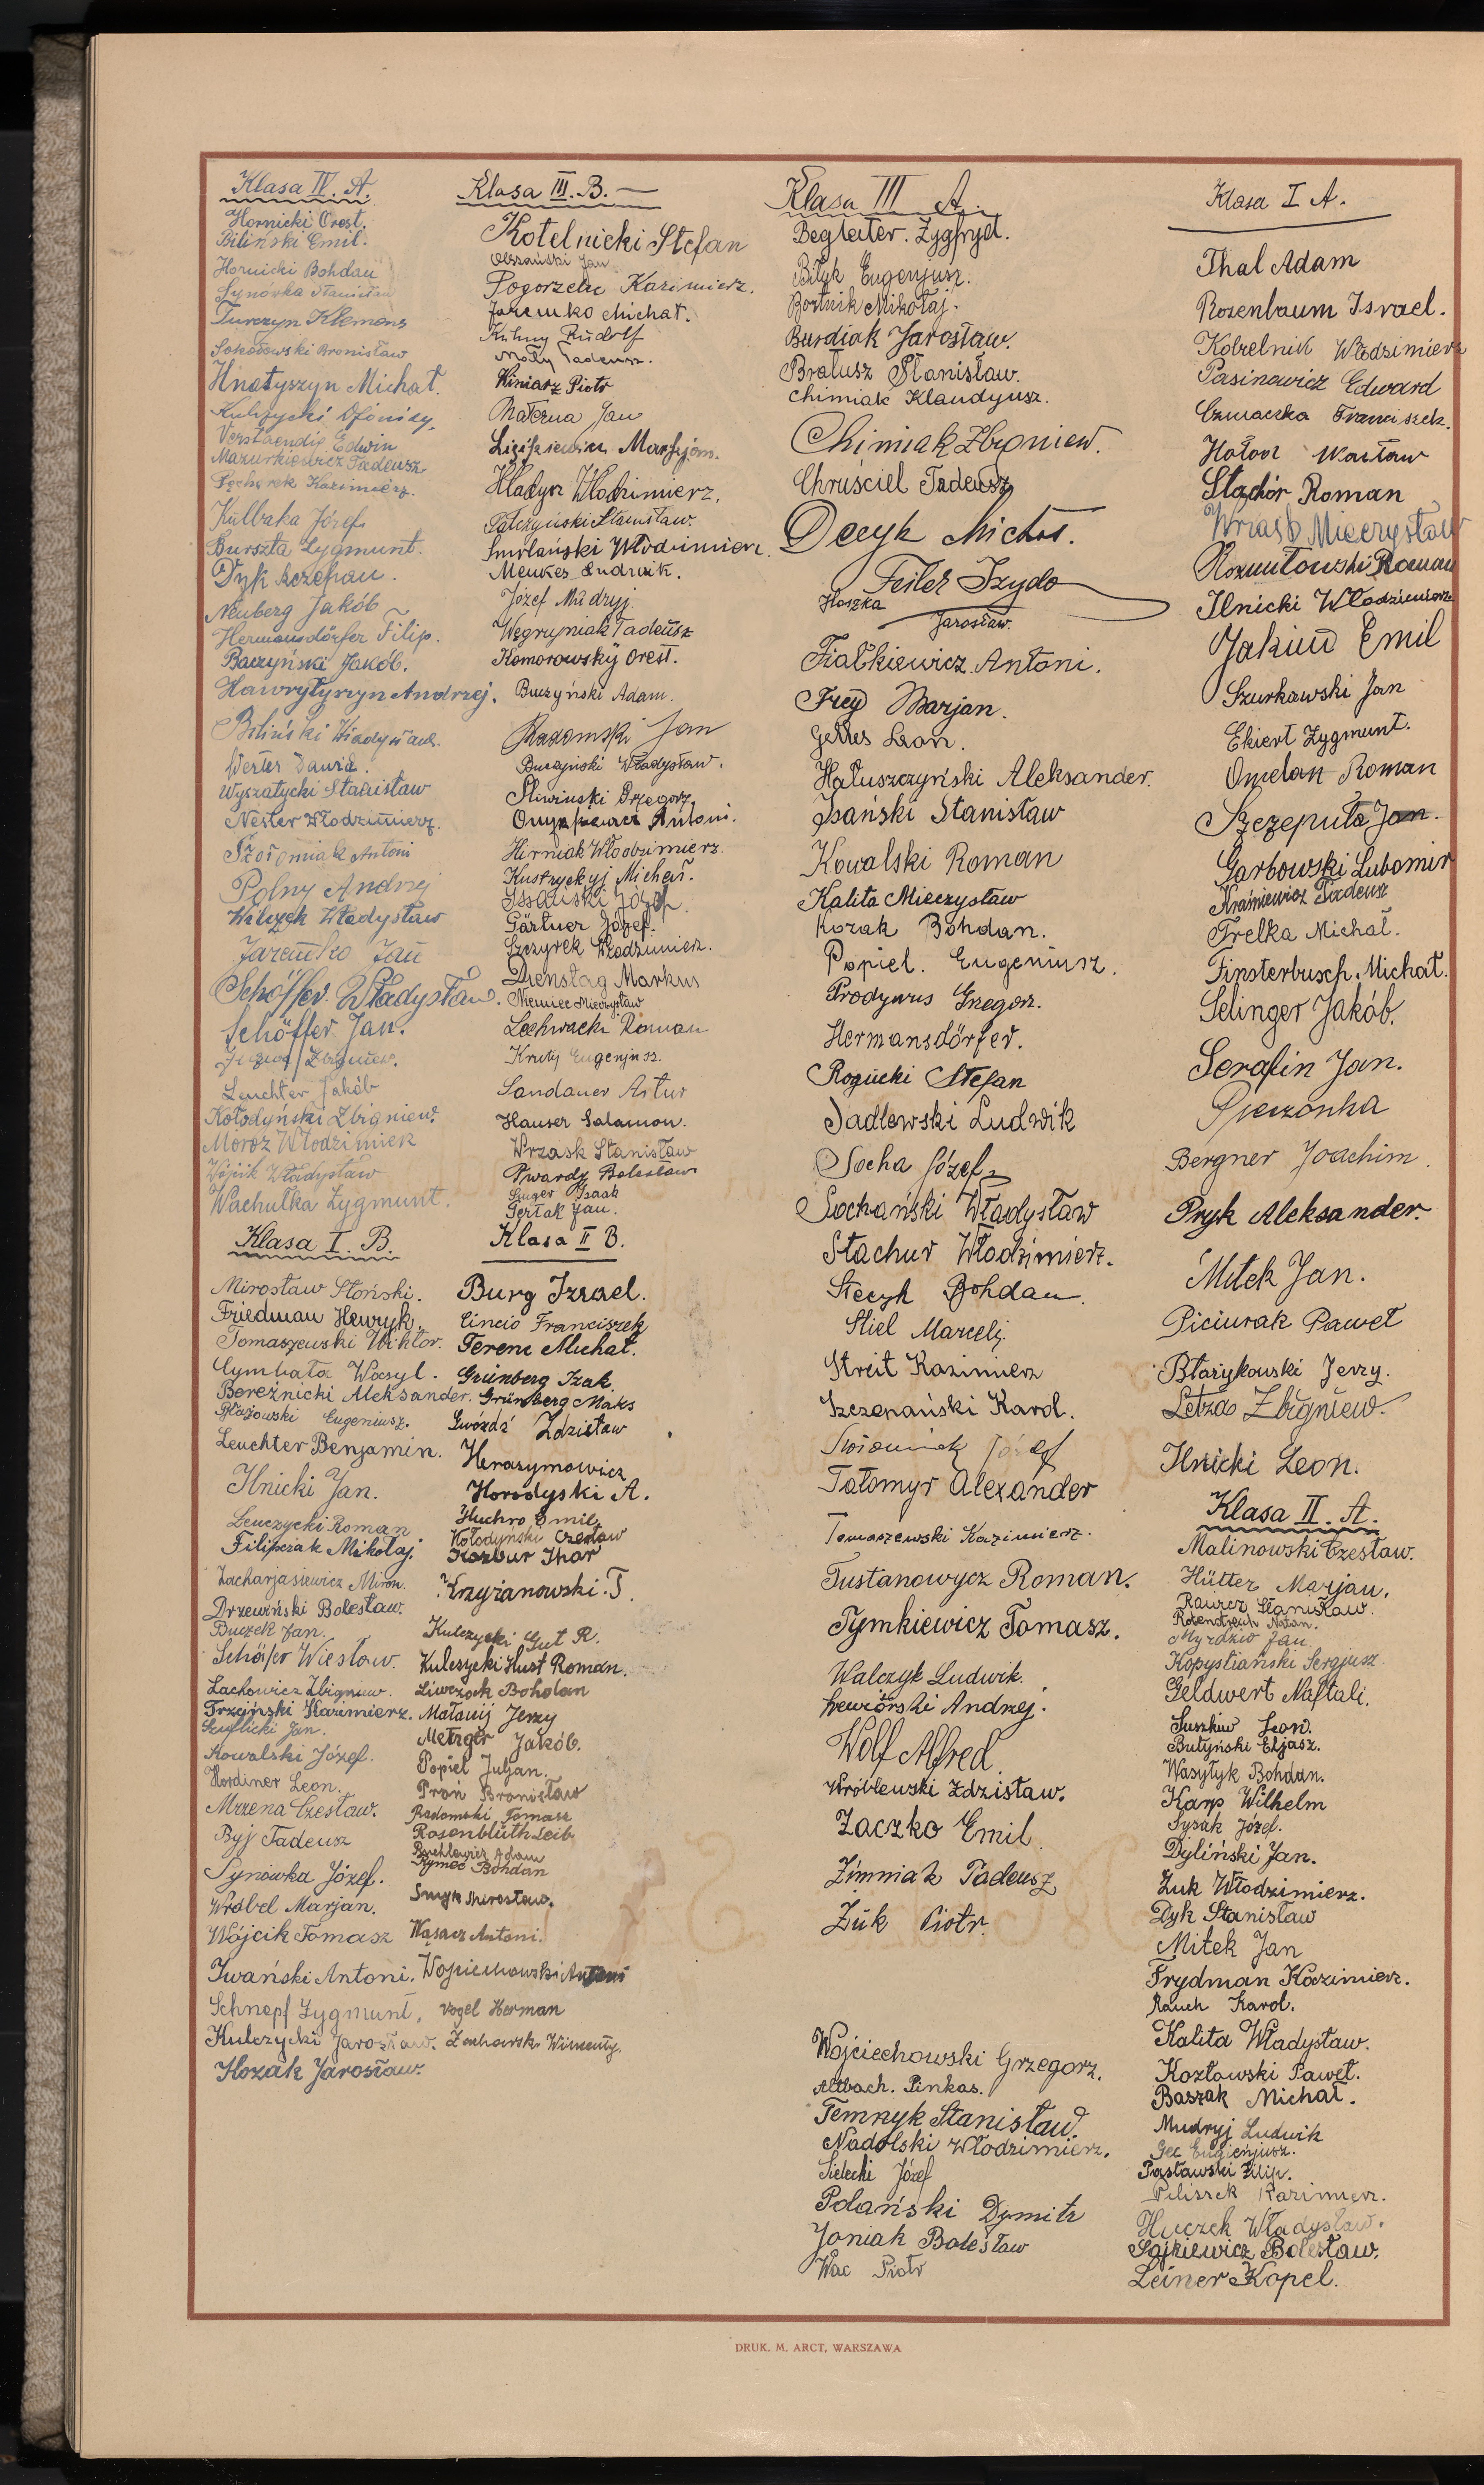 Klasa IV. A.
Hornicki Orest.
Biliński Emil.
Hornicki Bohdan
Synówka Stanisław
Turczyn Klemens
Sokołowski Bronisław
Hnatyszyn Michał.
Kulczycki
Verstaendig Edwin
Mazurkiewicz Tadeusz
Kazimierz.
Kulbaka Józef
Burszta Zygmunt.
Dyk Szczepan.
Neuberg Jakób
Hermansdörfer Filip.
Baczyński Jakób.
Hawryłyszyn Andrzej.
Biliński Władysław.
Werter Dawid.
Wyszatycki Stanisław
Nester Włodzimierz.
Antoni
Polny Andrzej
Wilczek Władysław
Jaremko Jan
Schöffer Władysław.
Schöffer Jan.
Zbigniew.
Leuchter Jakób
Kołodyński Zbigniew.
Moroz Włodzimierz
Wójcik Władysław
Wachulka Zygmunt.
Klasa I. B.
Mirosław Słoński.
Friedman Henryk.
Tomaszewski Wiktor.
Cymbała Wasyl.
Bereźnicki Aleksander.
Błażowski Eugeniusz.
Leuchter Benjamin.
Ilnicki Jan.
Leuczycki Roman
Filipczak Mikołaj.
Zacharjasiewicz Miron.
Drzewiński Bolesław.
Buczek Jan.
Schäfer Wiesław.
Lachowicz Zbigniew.
Trzciński Kazimierz.
Szuflicki Jan.
Kowalski Józef.
Hordiner Leon.
Mrzena Czesław.
Byj Tadeusz
Synowka Józef.
Wróbel Marjan.
Wójcik Tomasz
Iwański Antoni.
Schnepf Zygmunt,
Kulczycki Jarosław.
Kozak Jarosław.
Klasa III. B. —
Kotelnicki Stefan
Olszański Jan
Pogorzelec Kazimierz.
Jaremko Michał.
Rudolf
Mały Tadeusz.
Winiarz Piotr
Materna Jan
Marjan.
Hładyn Włodzimierz.
Pałczyński Stanisław.
Smolański Włodzimierz.
Menkes Ludwik.
Józef Mądryj.
Węgryniak Tadeusz
Komorowskÿ Orest.
Buczyński Adam.
Radomski Jan
Buczyński Władysław.
Śliwiński Grzegorz,
Antoni.
Hirniak Włodzimierz.
Kustryckyj Michał.
Issański Józef
Gärtner Józef.
Szczyrek Włodzimierz.
Dienstag Markus
Niemiec Mieczysław
Lechwacki Roman
Krutyj Eugenjusz.
Sandauer Artur
Hauser Salamon.
Wrzask Stanisław
Twardy Bolesław
Isaak
Gerlak Jan.
Klasa II B.
Burg Izrael.
Cincio Franciszek
Ferenc Michał.
Grünberg Izak.
Grünberg Maks
Gwóźdź Zdzisław
Herasymowicz
Horodyski A.
Huchro Emil
Kołodyński Czesław
Kozbur Ihor
Krzyżanowski T.
Kulczycki Gut R.
Kulczycki Hust Roman.
Liwczak Bohdan
Małowij Jerzy
Metzger Jakób.
Popiel Juljan.
Proń Bronisław
Radomski Tomasz
Rosenblüth Leib.
Adam
Rymec Bohdan
Smyk Mirosław.
Wąsacz Antoni.
Wojciechowski Antoni
Vogel Herman
Zacharski Wincenty.
Klasa III A.
Begleiter. Zygfryd.
Biłyk Eugenjusz.
Bortnik Mikołaj.
Burdiak Jarosław.
Bratusz Stanisław.
Chimiak Klaudyusz.
Chimiak Zbigniew.
Chruściel Tadeusz
Decyk Michał.
Feiler Izydo
Hoszka
Jarosław.
Fiałkiewicz Antoni.
Frey Marjan.
Gelles Leon.
Hałuszczyński Aleksander.
Isański Stanisław
Kowalski Roman
Kalita Mieczysław
Kozak Bohdan.
Popiel. Eugeniusz.
Prodywus Gregorz.
Hermansdörfer.
Rogucki Stefan
Sadlewski Ludwik
Socha Józef
Sochański Władysław
Stachur Włodzimierz.
Stecyk Bohdan.
Stiel Marceli.
Streit Kazimierz
Szczepański Karol.
Józef
Tatomyr Alexander
Tomaszewski Kazimierz.
Tustanowycz Roman.
Tymkiewicz Tomasz.
Walczyk Ludwik.
Andrzej.
Wolf Alfred.
Wróblewski Zdzisław.
Zaczko Emil
Zimniak Tadeusz
Żuk Piotr.
Wojciechowski Grzegorz.
Altbach. Pinkas.
Temnyk Stanisław.
Nadolski Włodzimierz.
Sielecki Józef
Polański Dymitr
Joniak Bolesław
Wac Piotr
Klasa I A.
Thal Adam
Rosenbaum Israel.
Kobzelnik Włodzimierz
Pasinowicz Edward
Czwaczka Franciszek.
Hołod Wacław
Stachór Roman
Wrzask Mieczysław
Rozmutowski Roman
Ilnicki Włodzimierz
Jakiw Emil
Szurkawski Jan
Ekiert Zygmunt.
Omelan Roman
Szczeputa Jan.
Garbowski Lubomir
Kraśniewicz Tadeusz
Trelka Michał.
Finsterbusch. Michał.
Selinger Jakób.
Serafin Jan.
Pieczonka
Bergner Joachim.
Pryk Aleksander.
Mitek Jan.
Piciurak Paweł
Błażykowski Jerzy.
Zbigniew.
Ilnicki Leon.
Klasa II. A.
Malinowski Czesław.
Hütter Marjan.
Raurcz Stanisław.
Rotenstreich Natan.
Myrdzio Jan
Kopystiański Sergjusz.
Geldwert Naftali.
Suszkiw Leon.
Butyński Eljasz.
Wasyłyk Bohdan.
Karp Wilhelm
Sysak Józef.
Dyliński Jan.
Żuk Włodzimierz.
Dyk Stanisław
Mitek Jan
Frydman Kazimierz.
Rauch Karol.
Kalita Władysław.
Kozłowski Paweł.
Baszak Michał.
Mudryj Ludwik
Gec Eugienjusz.
Pasławski Filip.
Piliszek Kazimierz.
Huczek Władysław.
Sajkiewicz Bolesław.
Leiner Kopel.
DRUK. M. ARCT, WARSZAWA